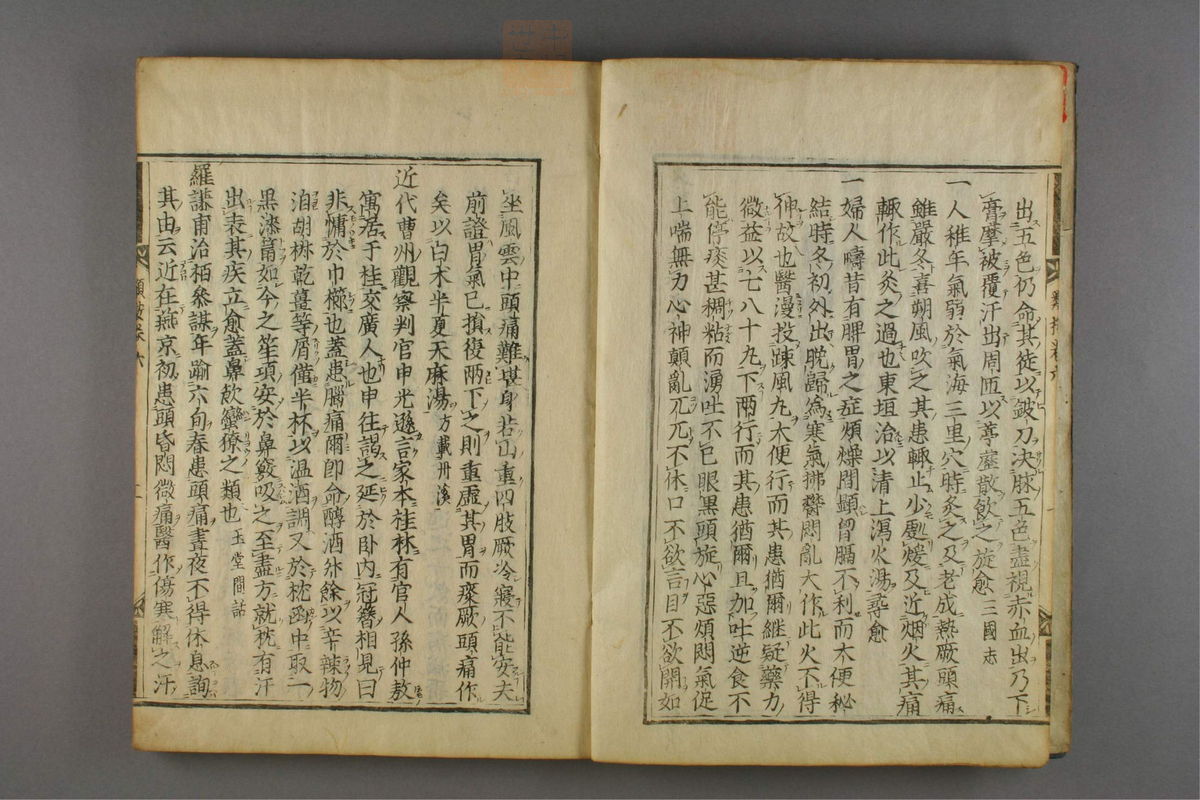 出五色仍命其徒以鈹刀決脉五色盡視赤血出乃下
膏摩被覆汗出周匝以葶藶散飲之旋愈 三國志
一人稚年氣弱於氣海三里穴時灸之及老成熱厥頭痛
雖嚴冬喜朔風吹之其患輒止少處煖及近烟火其痛
輒作此灸之過也東垣治以清上瀉火湯尋愈
一婦人疇昔有脾胃之症煩燥間顯胷膈不利而大便秘
結時冬初外出晚歸為寒氣拂欝悶亂大作此火不得
伸故也醫漫投踈風丸大便行而其患猶爾繼疑藥力
微益以七八十丸下兩行而其患猶爾且加吐逆食不
能停痰甚稠粘而湧吐不已眼黑頭旋心惡煩悶氣促
上喘無力心神顛亂兀兀不休口不欲言目不欲開如
坐風雲中頭痛難堪身若山重四肢厥冷寢不能安夫
前證胃氣已損復兩下之則重虛其胃而痰厥頭痛作
矣以白朮半夏天麻湯 方載丹溪
近代曹州觀察判官申光遜言家本桂林有官人孫仲敖
寓居于桂交廣人也申往謁之延於卧内冠簪相見曰
非慵於巾櫛也蓋患腦痛爾即命醇酒升餘以辛辣物
洎胡椒乾薑等屑僅半杯以温酒調又於枕函中取一
黑漆筩如今之笙項安於鼻竅吸之至盡方就枕有汗
出表其疾立愈蓋鼻飲蠻獠之類也 玉堂閒話
羅謙甫治栢參謀年踰六旬春患頭痛晝夜不得休息詢
其由云近在燕京初患頭昏悶微痛醫作傷寒解之汗